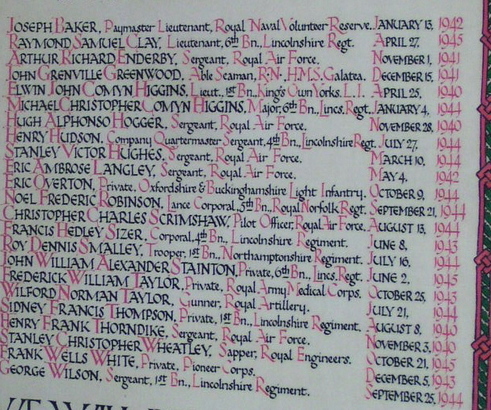 JOSEPH BAKER, Paymaster Lieutenant, Royal Naval Volunteer Reserve. JANUARY 13, 1942
RAYMOND SAMUEL CLAY, Lieutenant, 6th Bn., Lincolnshire Regt. APRIL 27, 1945
ARTHUR RICHARD ENDERBY, Sergeant, Royal Air Force. NOVEMBER 1, 1941
JOHN GRENVILLE GREENWOOD, Able Seaman, R.N. H.M.S. Galatea. DECEMBER 15, 1941
ELWIN JOHN COMYN HIGGINS, Lieut., 1st Bn., King's Own Yorks. L.I. APRIL 25, 1940
MICHAEL CHRISTOPHER COMYN HIGGINS, Major, 6th Bn., Lincs. Regt. JANUARY 4, 1944
HUGH ALPHONSO HOGGER, Sergeant, Royal Air Force. NOVEMBER 28, 1940
HENRY HUDSON, Company Quartermaster Sergeant, 4th Bn., Lincolnshire Regt. JULY 27, 1944
STANLEY VICTOR HUGHES, Sergeant, Royal Air Force. MARCH 10, 1944
ERIC AMBROSE LANGLEY, Sergeant, Royal Air Force. MAY 4, 1942
ERIC OVERTON, Private, Oxfordshire & Buckinghamshire Light Infantry. OCTOBER 9, 1944
NOEL FREDERIC ROBINSON, Lance Corporal, 5th Bn., Royal Norfolk Regt. SEPTEMBER 21, 1944
CHRISTOPHER CHARLES SCRIMSHAW, Pilot Officer, Royal Air Force. AUGUST 13, 1944
FRANCIS HEDLEY SIZER, Corporal, 4th Bn., Lincolnshire Regiment. JUNE 8, 1943
ROY DENNIS SMALLEY, Trooper, 1st Bn., Northamptonshire Regiment. JULY 16, 1944
JOHN WILLIAM ALEXANDER STAINTON, Private, 6th Bn., Lincs. Regt. JUNE 2, 1945
FREDERICK WILLIAM TAYLOR, Private, Royal Army Medical Corps. OCTOBER 25, 1943
WILFORD NORMAN TAYLOR, Gunner, Royal Artillery. JULY 21, 1944
SIDNEY FRANCIS THOMPSON, Private, 1st Bn., Lincolnshire Regiment. AUGUST 8, 1940
HENRY FRANK THORNDIKE, Sergeant, Royal Air Force. NOVEMBER 3, 1940
STANLEY CHRISTOPHER WHEATLEY, Sapper, Royal Engineers. OCTOBER 21, 1945
FRANK WELLS WHITE, Private, Pioneer Corps. DECEMBER 5, 1943
GEORGE WILSON, Sergeant, 1st Bn., Lincolnshire Regiment. SEPTEMBER 25, 1944